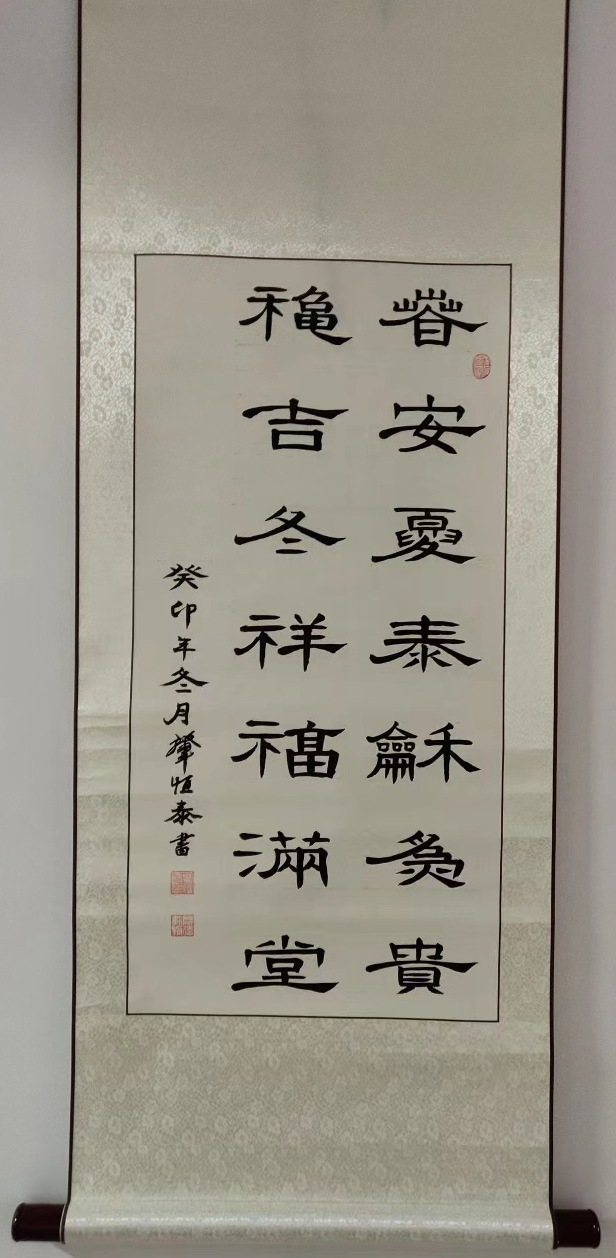 萅安憂泰龢為貴
龝吉冬祥福滿堂
癸卯年冬月肇恒泰書